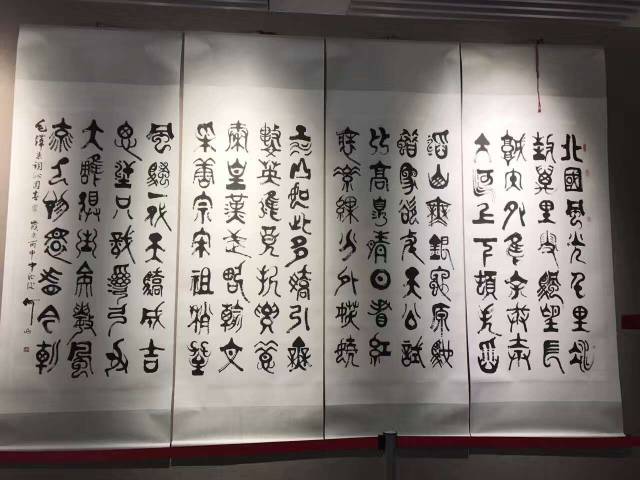 北國風光千里冰
封萬里雪飄望長
城內外惟余莽莽
大河上下頓失滔
滔山舞銀蛇原馳
蠟象欲與天公試
比高須晴日看紅
裝素裹分外妖嬈
江山如此多嬌引無
數英雄競折腰惜
秦皇漢武略輸文
采唐宗宋祖稍遜
風騷一代天驕成吉
思汗只識彎弓射
大雕俱往矣數風
流人物還看今朝
毛澤東詞沁園春雪 歲次丙申